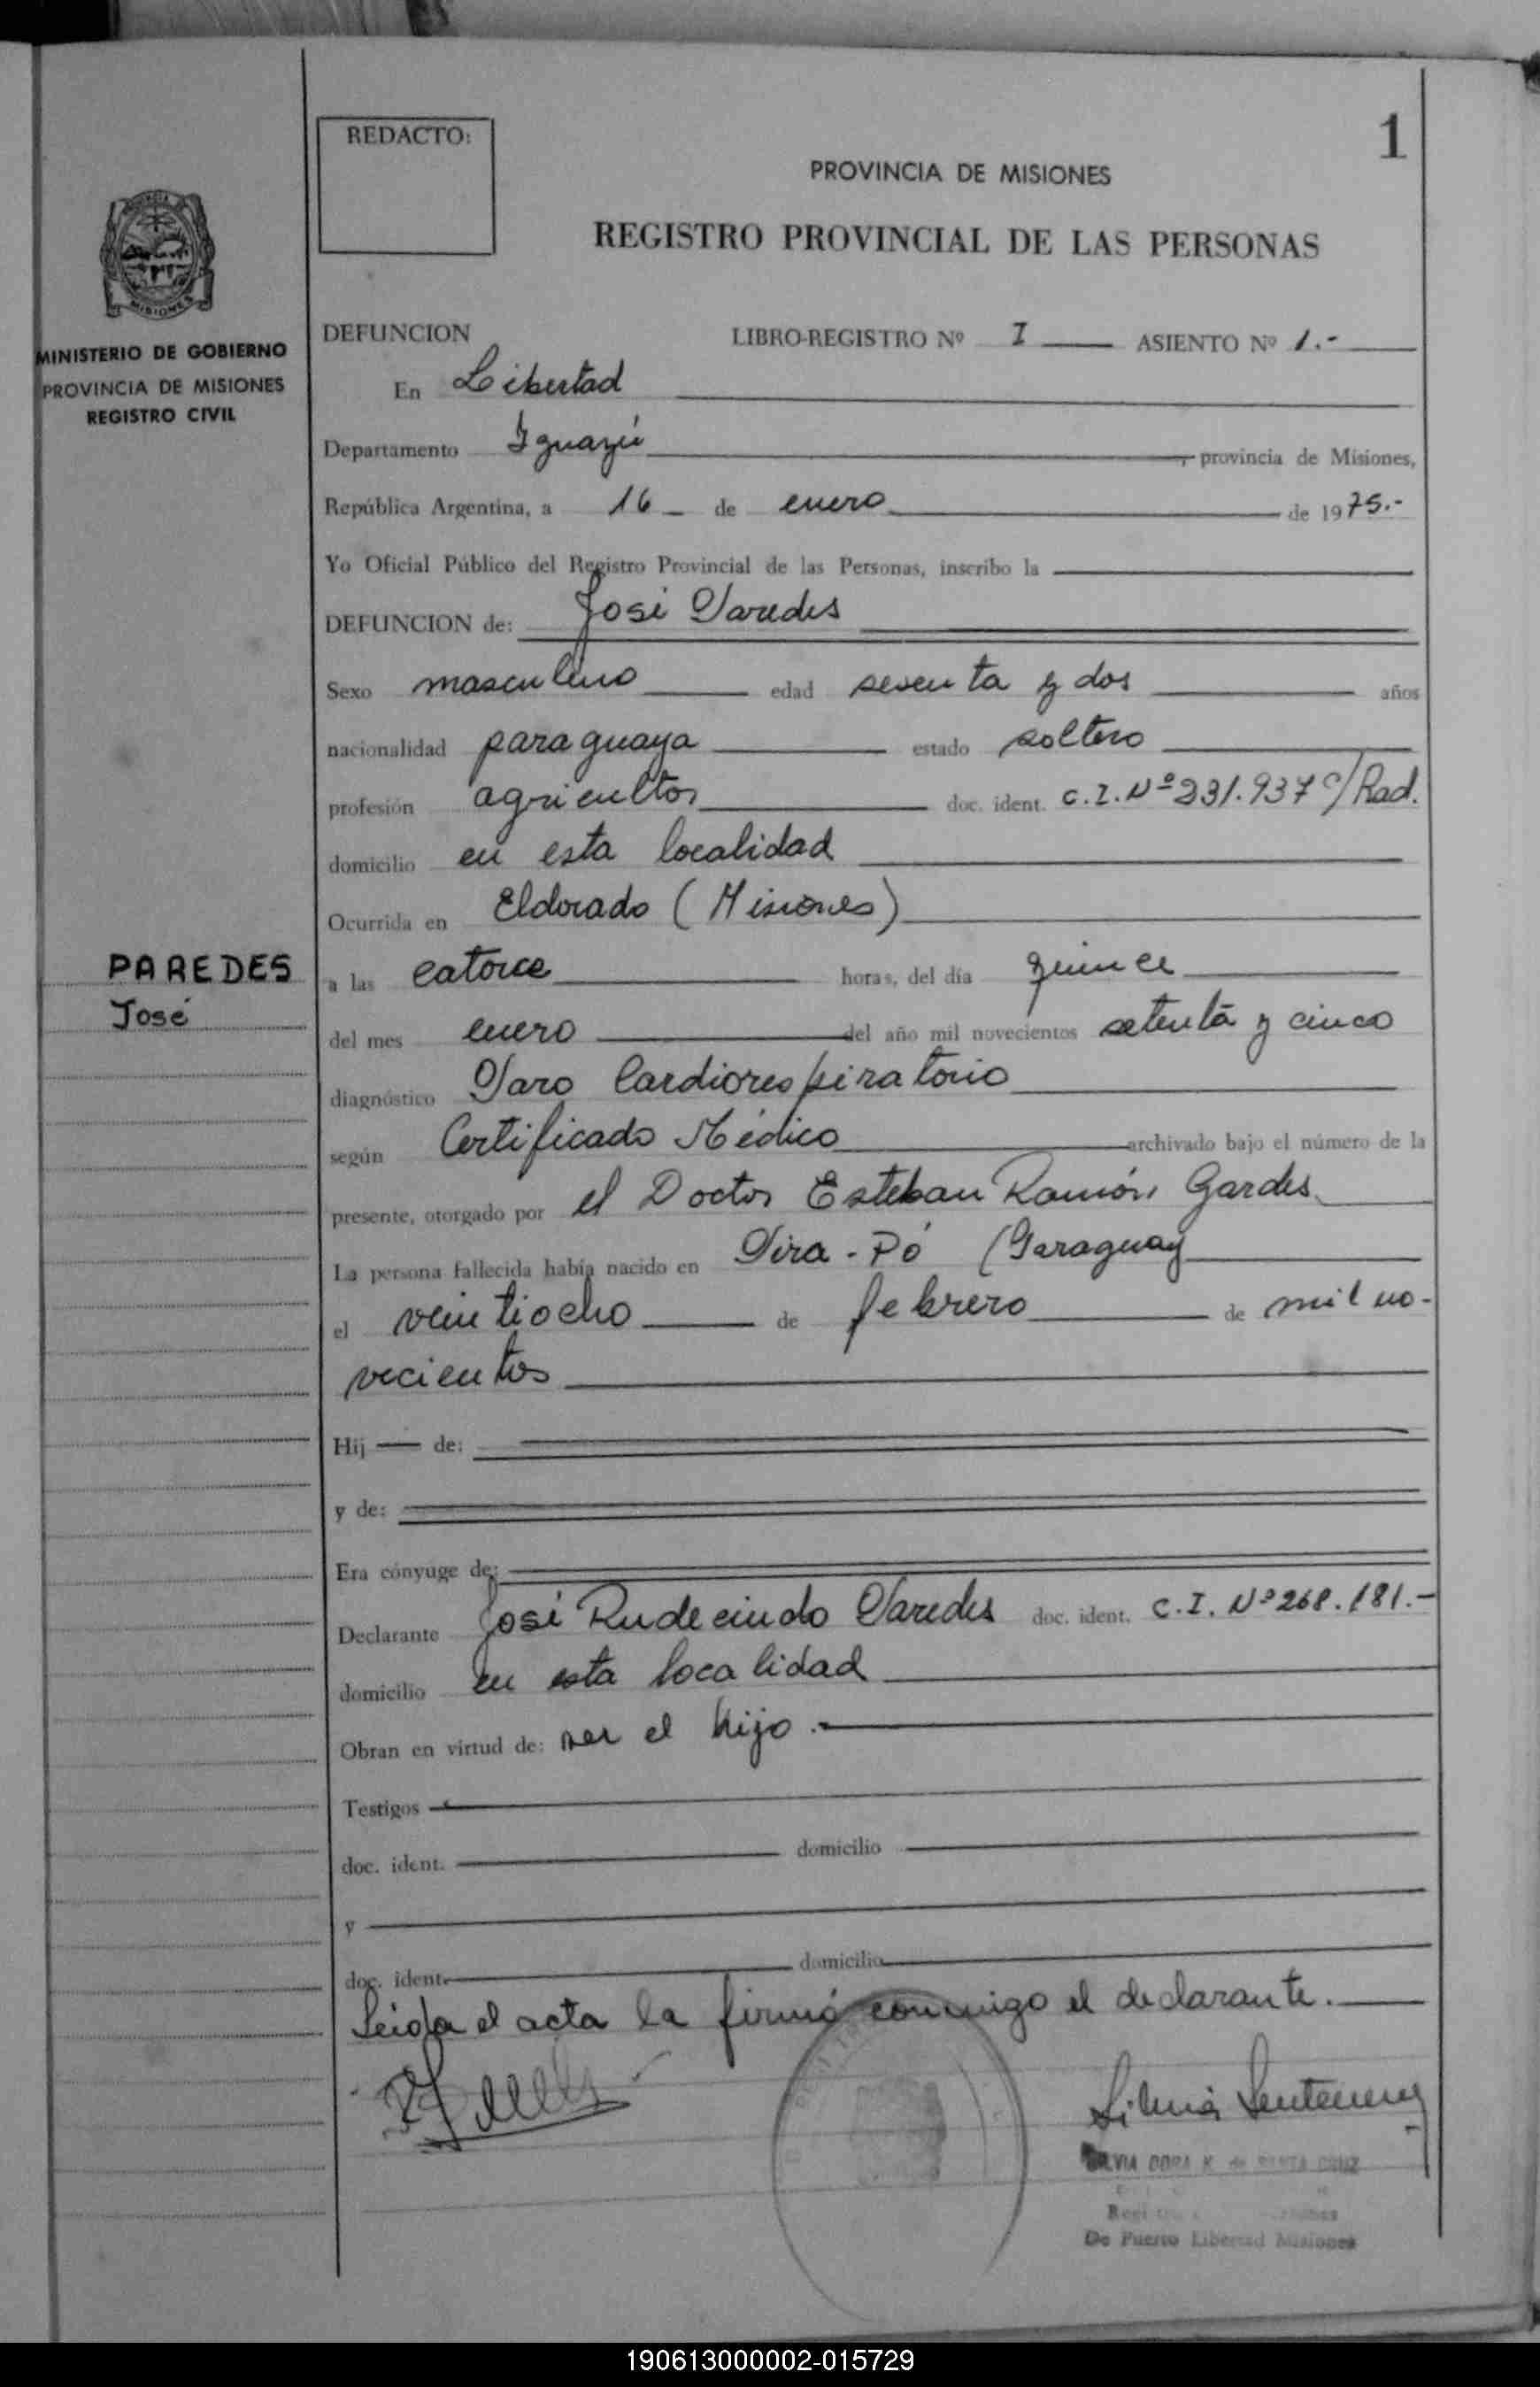 1
REDACTO:
PROVINCIA DE MISIONES
REGISTRO PROVINCIAL DE LAS PERSONAS
MISIONES
MINISTERIO DE GOBIERNO
PROVINCIA DE MISIONES
REGISTRO CIVIL
DEFUNCION LIBRO-REGISTRO Nº I ASIENTO Nº 1.-
En Libertad
Departamento Iguazú, provincia de Misiones,
República Argentina, a 16 de enero de 1975.-
Yo Oficial Público del Registro Provincial de las Personas, inscribo la
DEFUNCION de: José Paredes
Sexo masculino edad sesenta y dos años
nacionalidad paraguaya estado soltero
profesión agricultor doc. ident. C.I. Nº 231.937 c/Rad.
domicilio en esta localidad
Ocurrida en Eldorado (Misiones)
PAREDES
José
a las catorce horas, del día quince
del mes enero del año mil novecientos setenta y cinco
diagnóstico Paro Cardiorespiratorio
según Certificado Médico archivado bajo el número de la
presente, otorgado por el Doctor Esteban Ramón Gardes
La persona fallecida había nacido en Pira-Pó (Paraguay
el veintiocho de febrero de mil no-
vecientos
Hij — de:
y de:
Era cónyuge de:
Declarante José Rudecindo Paredes doc. ident. C.I. Nº 268.181.-
domicilio en esta localidad
Obran en virtud de: ser el hijo.-
Testigos
doc. ident. domicilio
y
doc. ident. domicilio
Leida el acta la firmó conmigo el declarante.
SILVIA DORA K de SANTA CRUZ
De Puerto Libertad Misiones
190613000002-015729